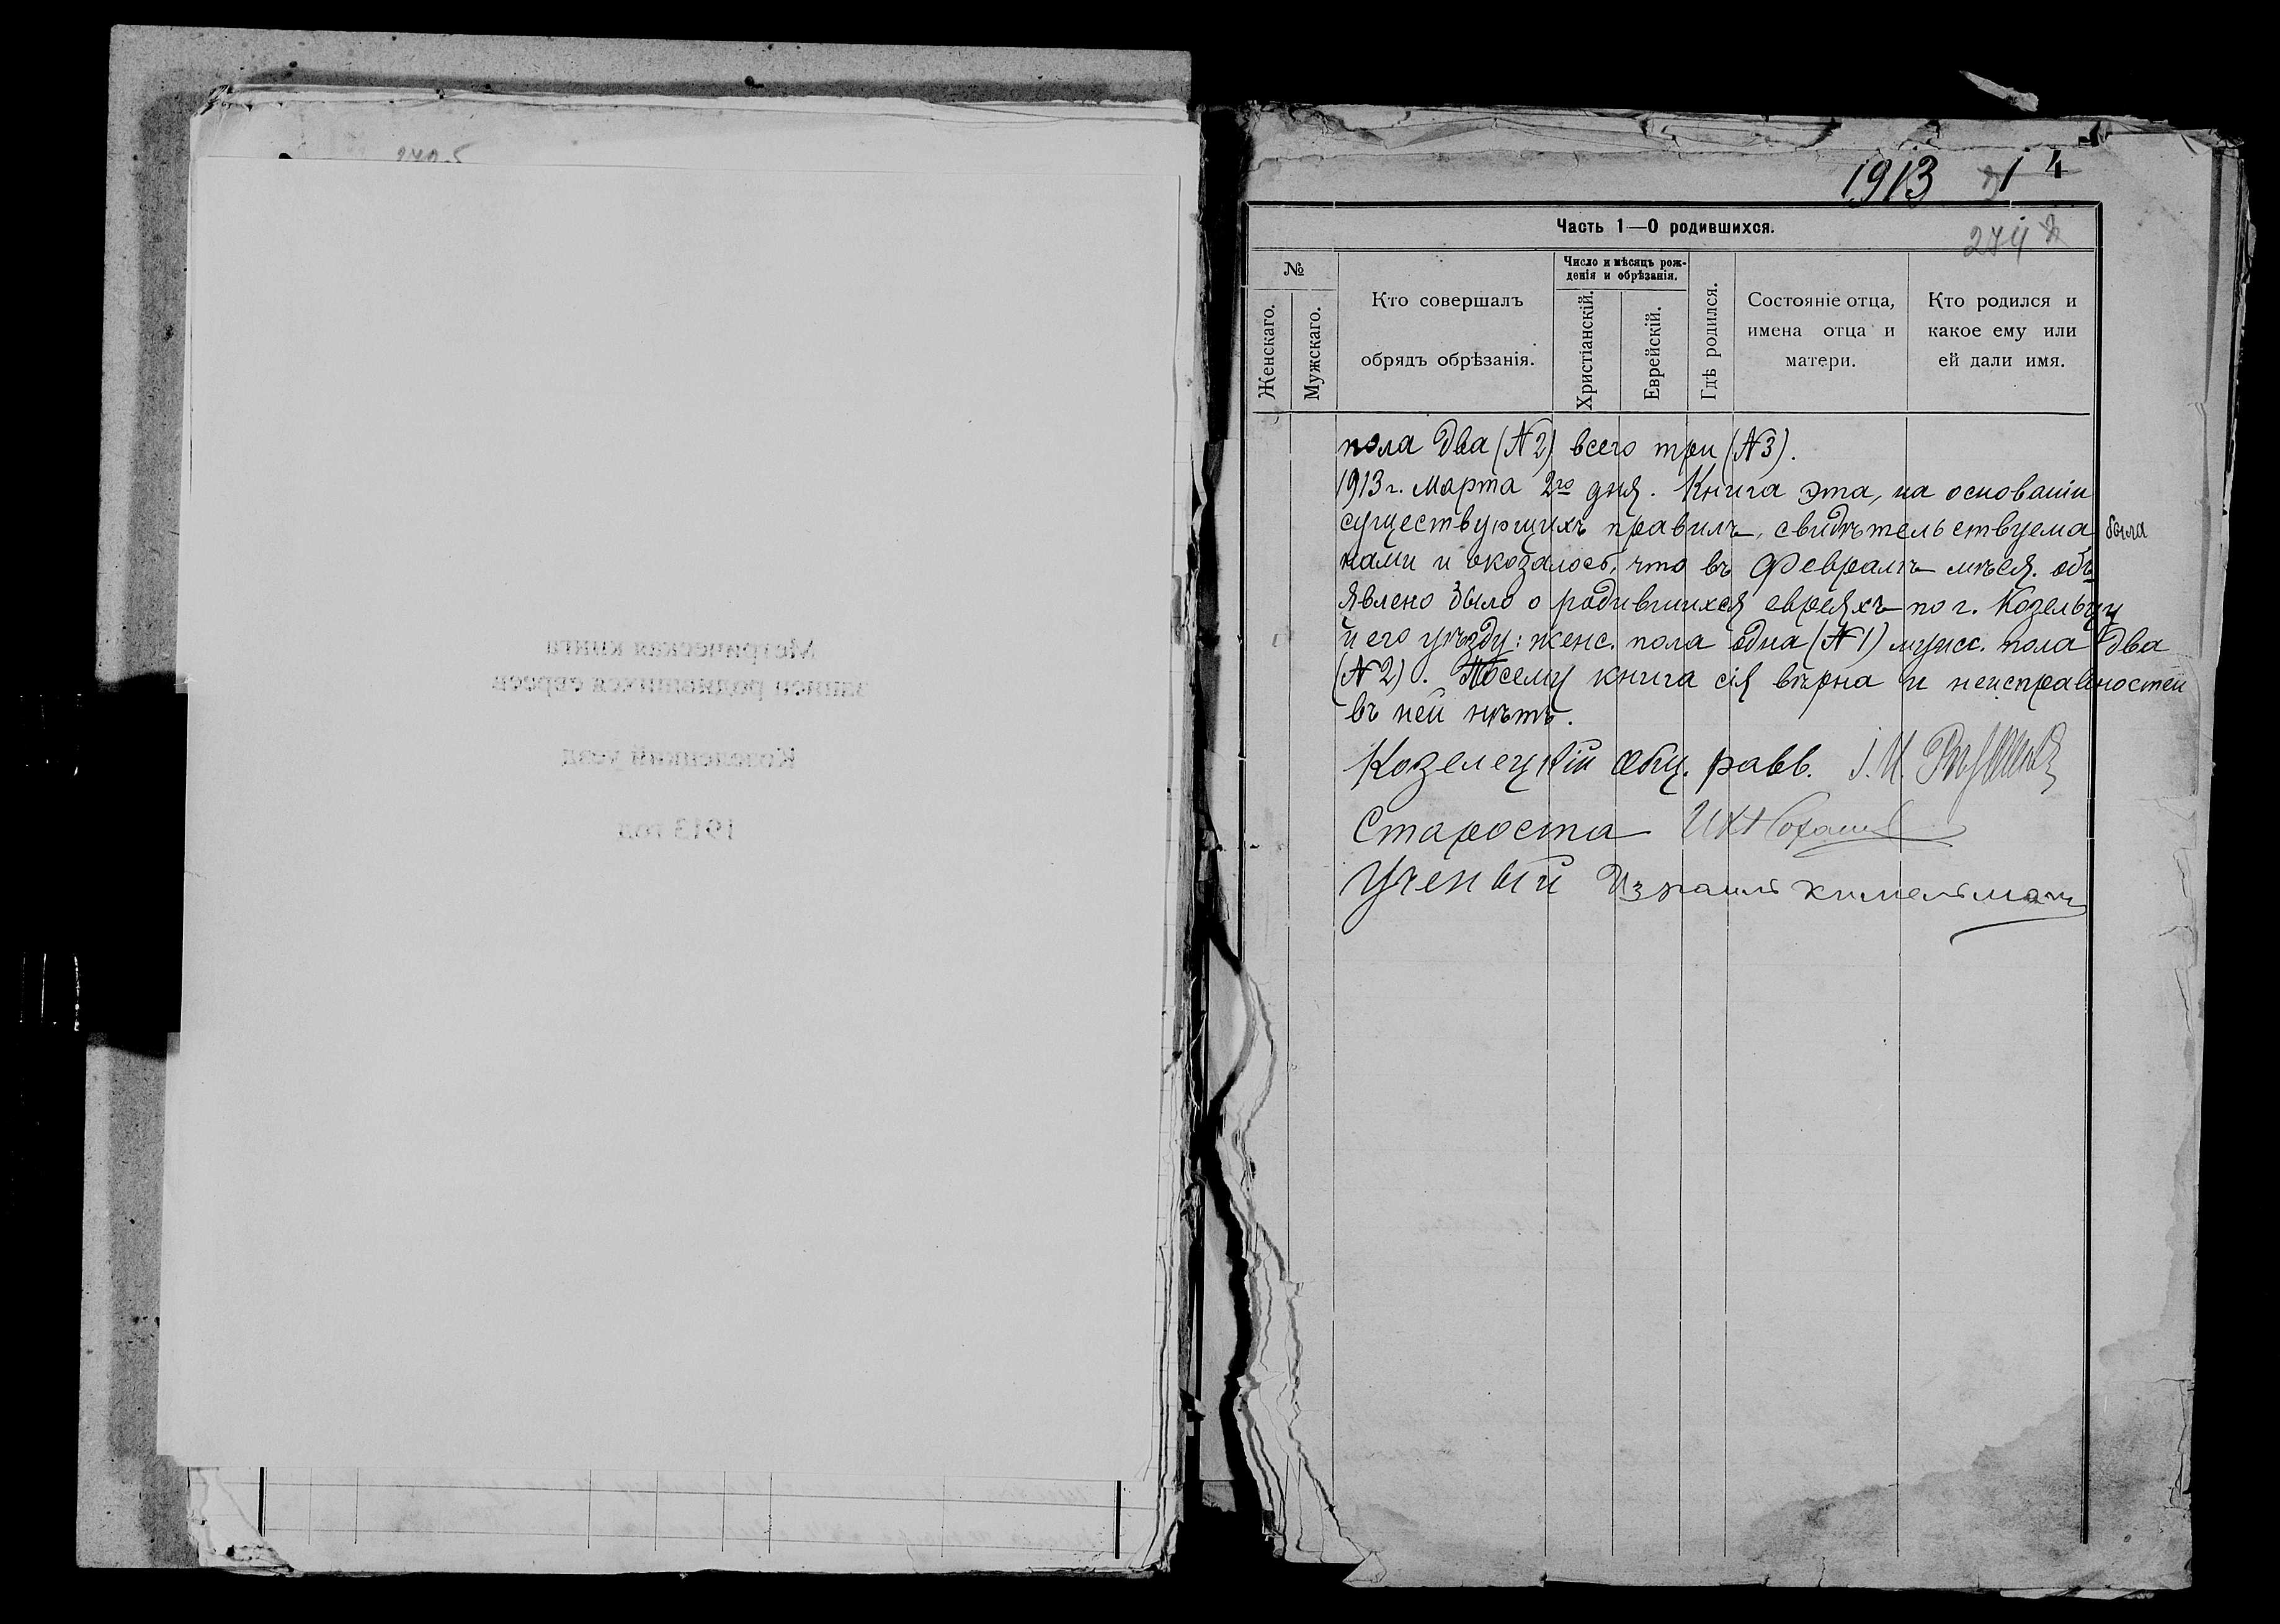 Метрическая книга
записей родившихся евреев
Козелецкий уезд
1913 год
1913
4
274
Часть 1—О родившихся.
№
Женскаго.
Мужскаго.
Кто совершалъ
обрядъ обрѣзанія.
Число и мѣсяцъ рож-
денія и обрѣзанія.
Христіанскій.
Еврейскій.
Гдѣ родился.
Состояніе отца,
имена отца и
матери.
Кто родился и
какое ему или
ей дали имя.
пола два (№2) всего три (№3).
1913 г. Марта 2го дня. Книга эта, на основаніи
существующихъ правилъ, свидѣтельствуема была
нами и оказалось, что въ Февралѣ мѣся. объ
явлено было о родившихся евреяхъ по г. Козельцу
и его уѣзду: женс. пола одна (№1) мужс. пола два
(№2). Посему книга сія вѣрна и неисправностей
въ ней нѣтъ.
Козелецкій Общ. равв. І. И.
Староста
Ученый Израиль Кимельман